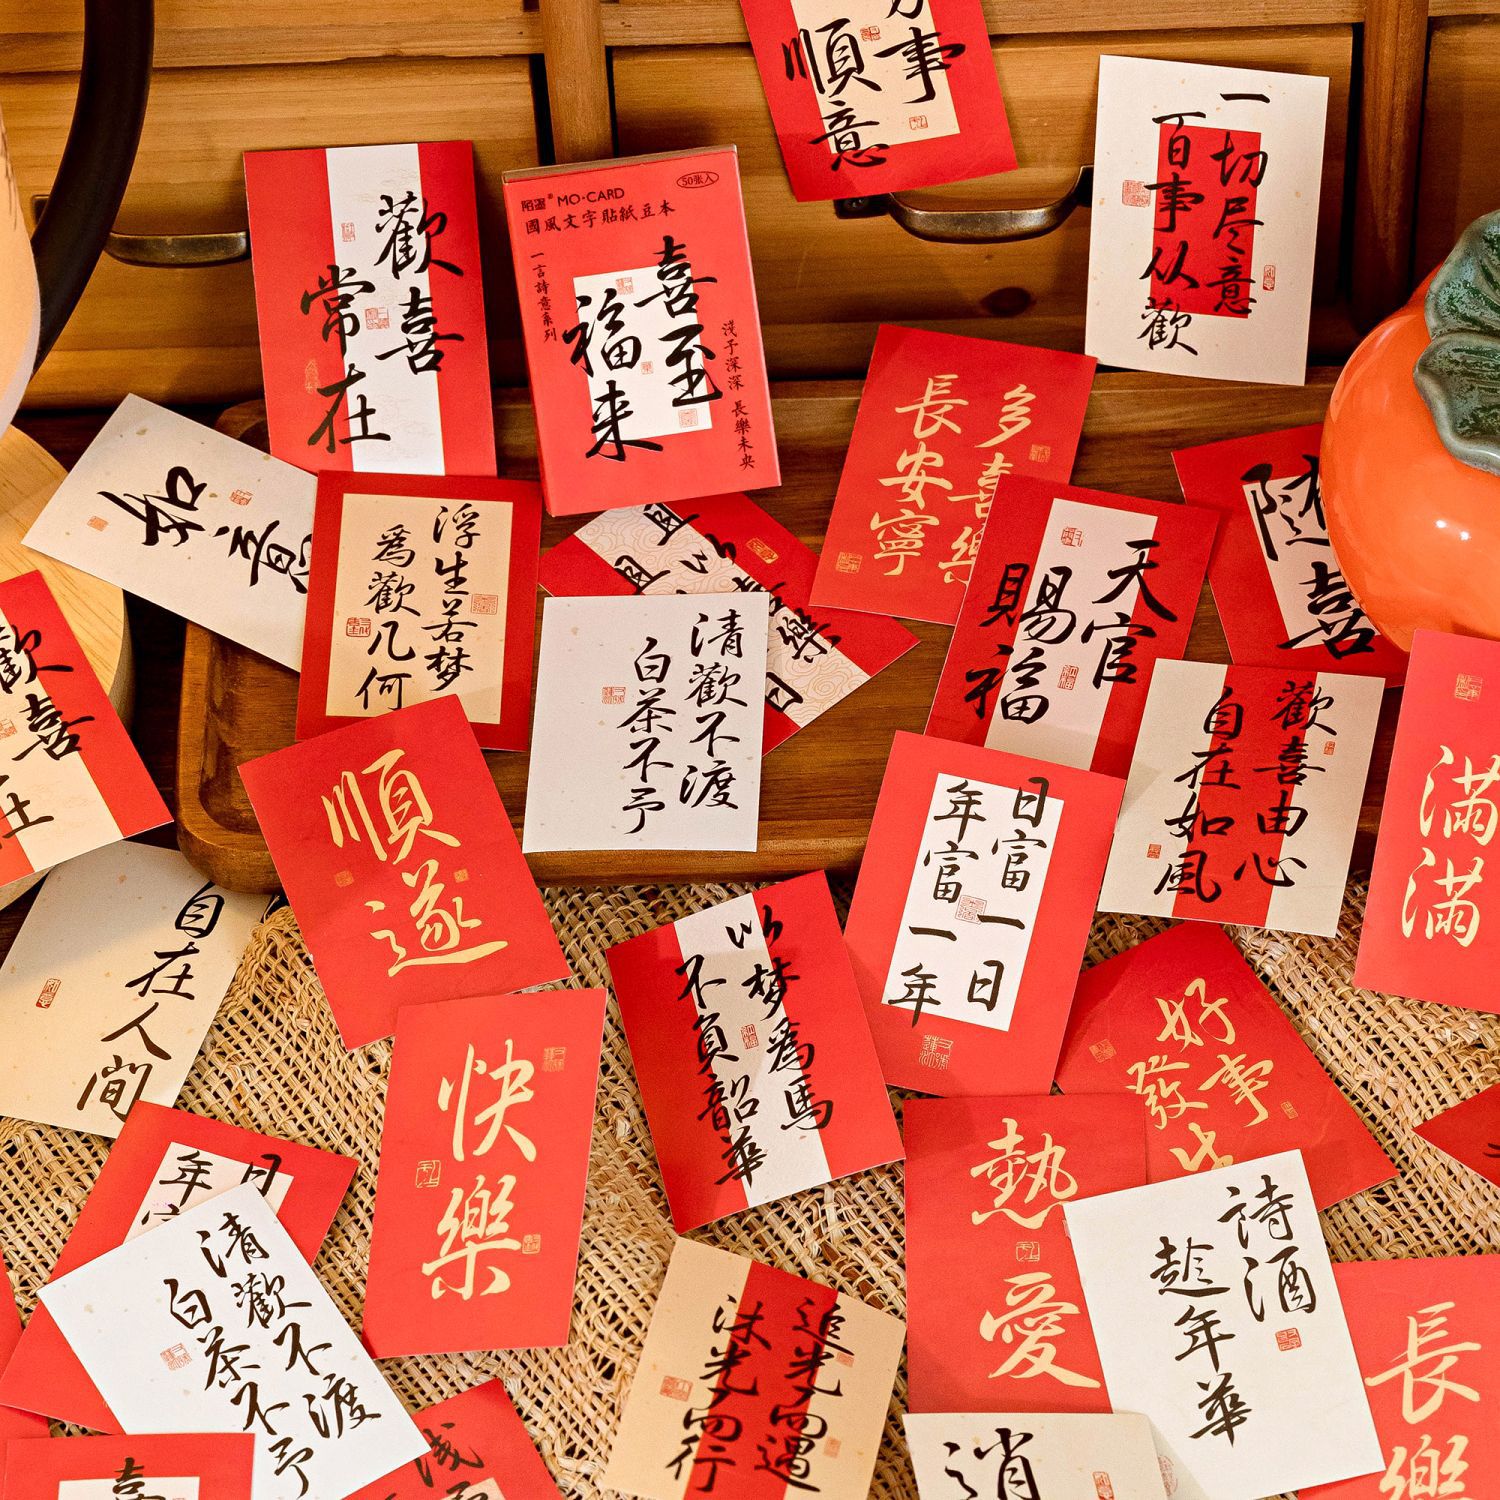 事
順意
一切尽意
百事从歡
歡喜
常在
陌墨® MO·CARD
50张入
國風文字貼紙豆本
一言詩意系列
喜至
福来
淺予深深 長樂未央
多喜樂
長安寧
隨喜
如意
浮生若梦
爲歡几何
清歡不渡
白茶不予
天官
賜福
歡喜由心
自在如風
滿滿
歡喜
順遂
日富一日
年富一年
自在人間
以梦爲馬
不負韶華
快樂
好事
發
熱愛
詩酒
趁年華
日
年
清歡不渡
白茶不予
追光而遇
沐光而行
長樂
消
喜
浅